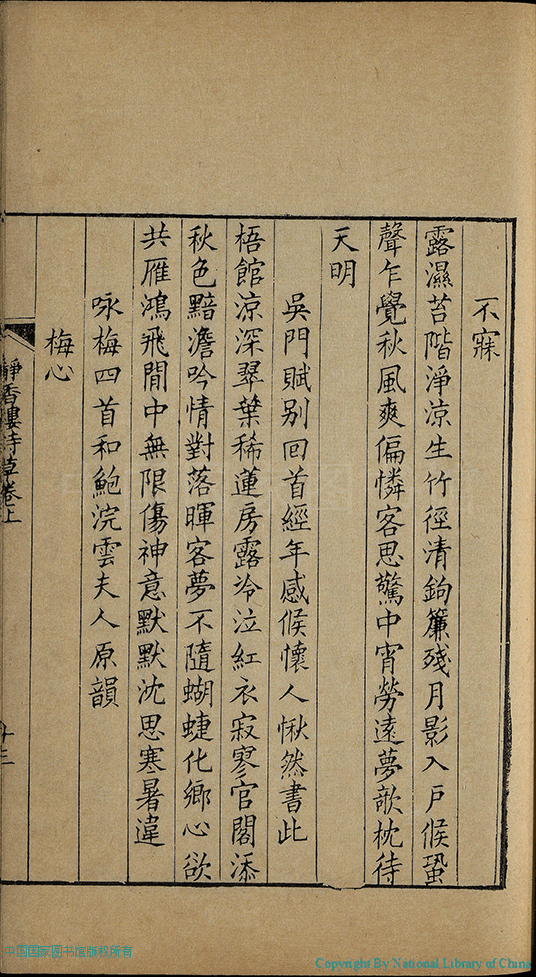 不寐
露濕苔階淨涼生竹徑清鉤簾殘月影入戶候蛩
聲乍覺秋風爽偏憐客思驚中宵勞遠夢欹枕待
天明
吳門賦别回首經年感候懷人愀然書此
梧館涼深翠葉稀蓮房露冷泣紅衣寂寥官閣添
秋色黯澹吟情對落暉客夢不隨蝴蜨化鄉心欲
共雁鴻飛閒中無限傷神意默默沈思寒暑違
咏梅四首和鮑浣雲夫人原韻
梅心
靜香樓詩草卷上
十三
中国国家图书馆版权所有
Copyright By National Library of China